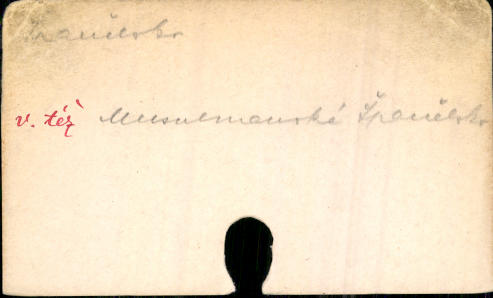 Španělsko
v. též Musulmanské Španělsko